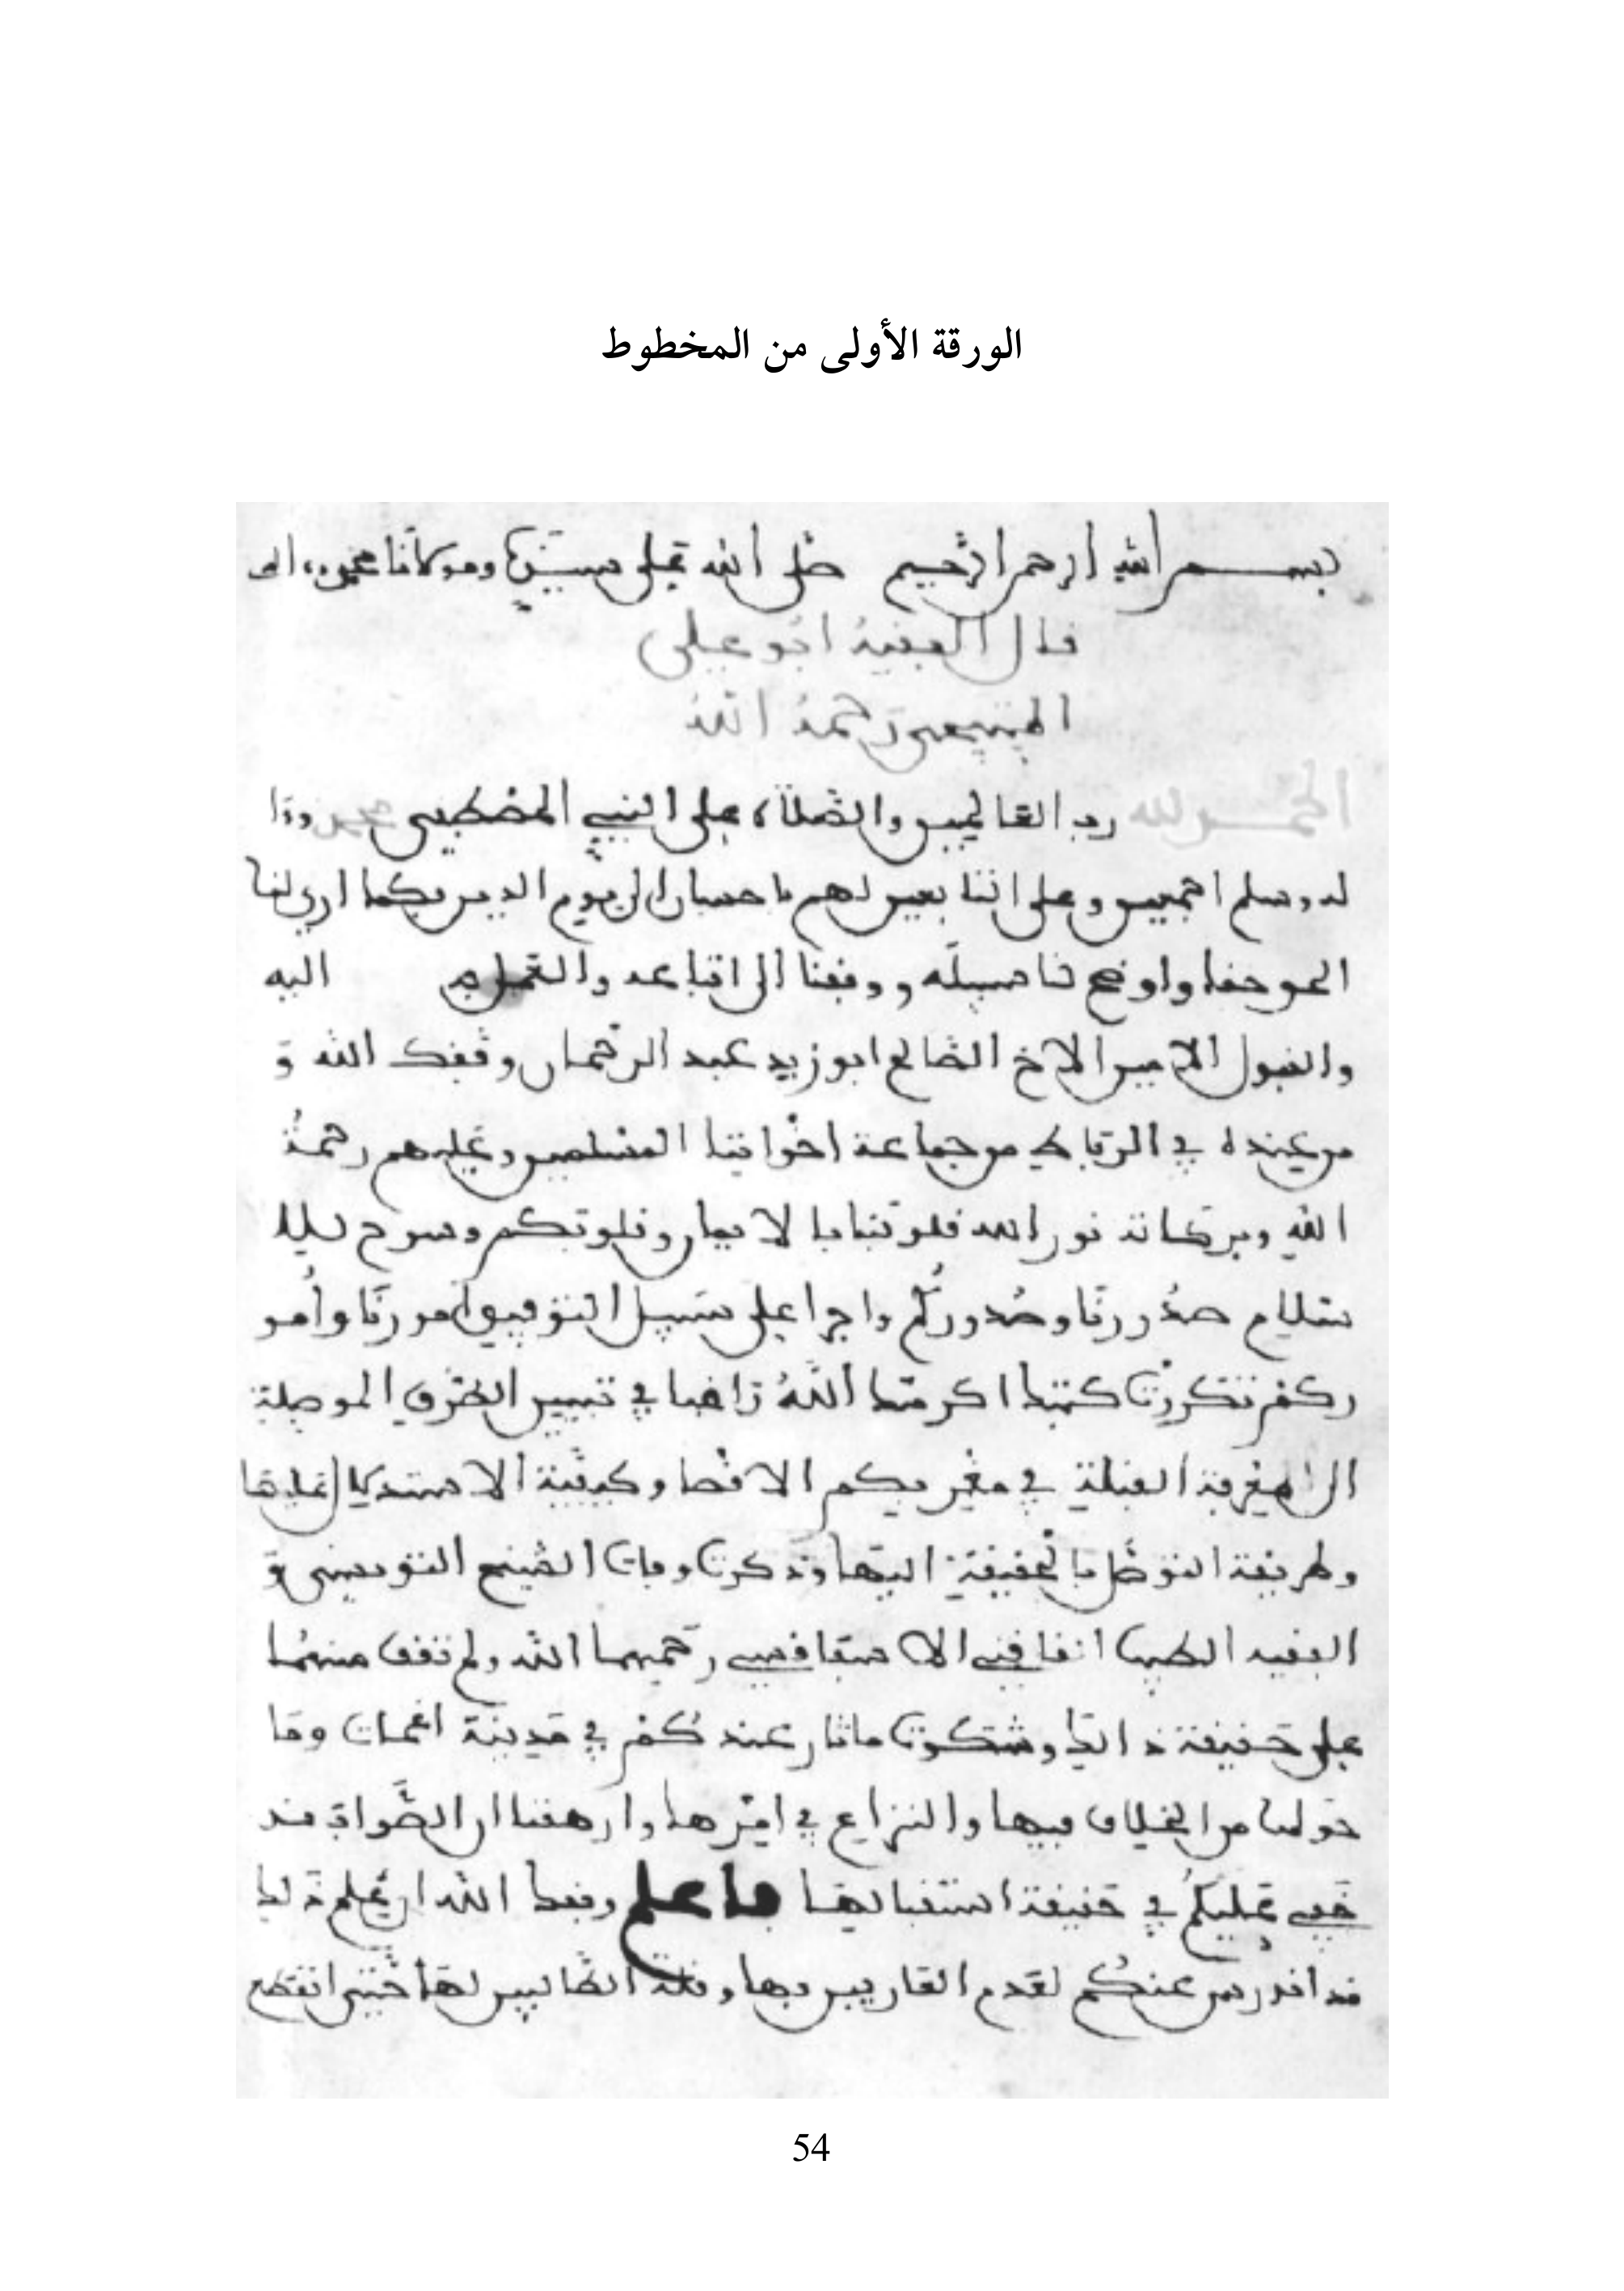 الورقة الأولى من المخطوط
بسم الله الرحمن الرحيم صلى الله على سيدنا ومولانا محمد
قال الفقيه ابو علي
رحمه الله
الحمد لله رب العالمين والصلاة على النبي المصطفى محمد وءا
له وسلم اجمعين وعلى التابعين لهم باحسان الى يوم الدين
الحق حقا واوضح لنا سبيله ووفقنا الى اتباعه والعمل به اليه
والقبول الامين الاخ الصالح ابو زيد عبد الرحمان وفقك الله و
من عنده في الرباط من جماعة اخواننا المسلمين وعليهم رحمة
الله وبركاته نور الله قلوبنا بالايمان وقلوبكم وسرح لله
سلام صدورنا وصدوركم واجرا على سبيل التوفيق امورنا وأمو
ركم ذكرت كتبك اكرمك الله راغبا في تبيين الطرق الموصلة
الى معرفة القبلة في مغربكم الاقصا وكيفية الاستدلال عليها
وطريقة التوصل بالحقيقة اليها وذكرت وفات الشيخ التونسي و
الفقيه الطيب رحمهما الله ولم تقف منهما
على حقيقة ذالك وشكوت ماثار عندكم في مدينة اغمات وما
حولها من الخلاف فيها والنزاع في امرها وارهقنا ان الصواب قد
خفي عليكم في حقيقة استقبالها فاعلم وفقك الله ان علم ذلك
قد اندرس عندكم لعدم العارفين بها وقلة الطالبين لها حتى انقطع
54